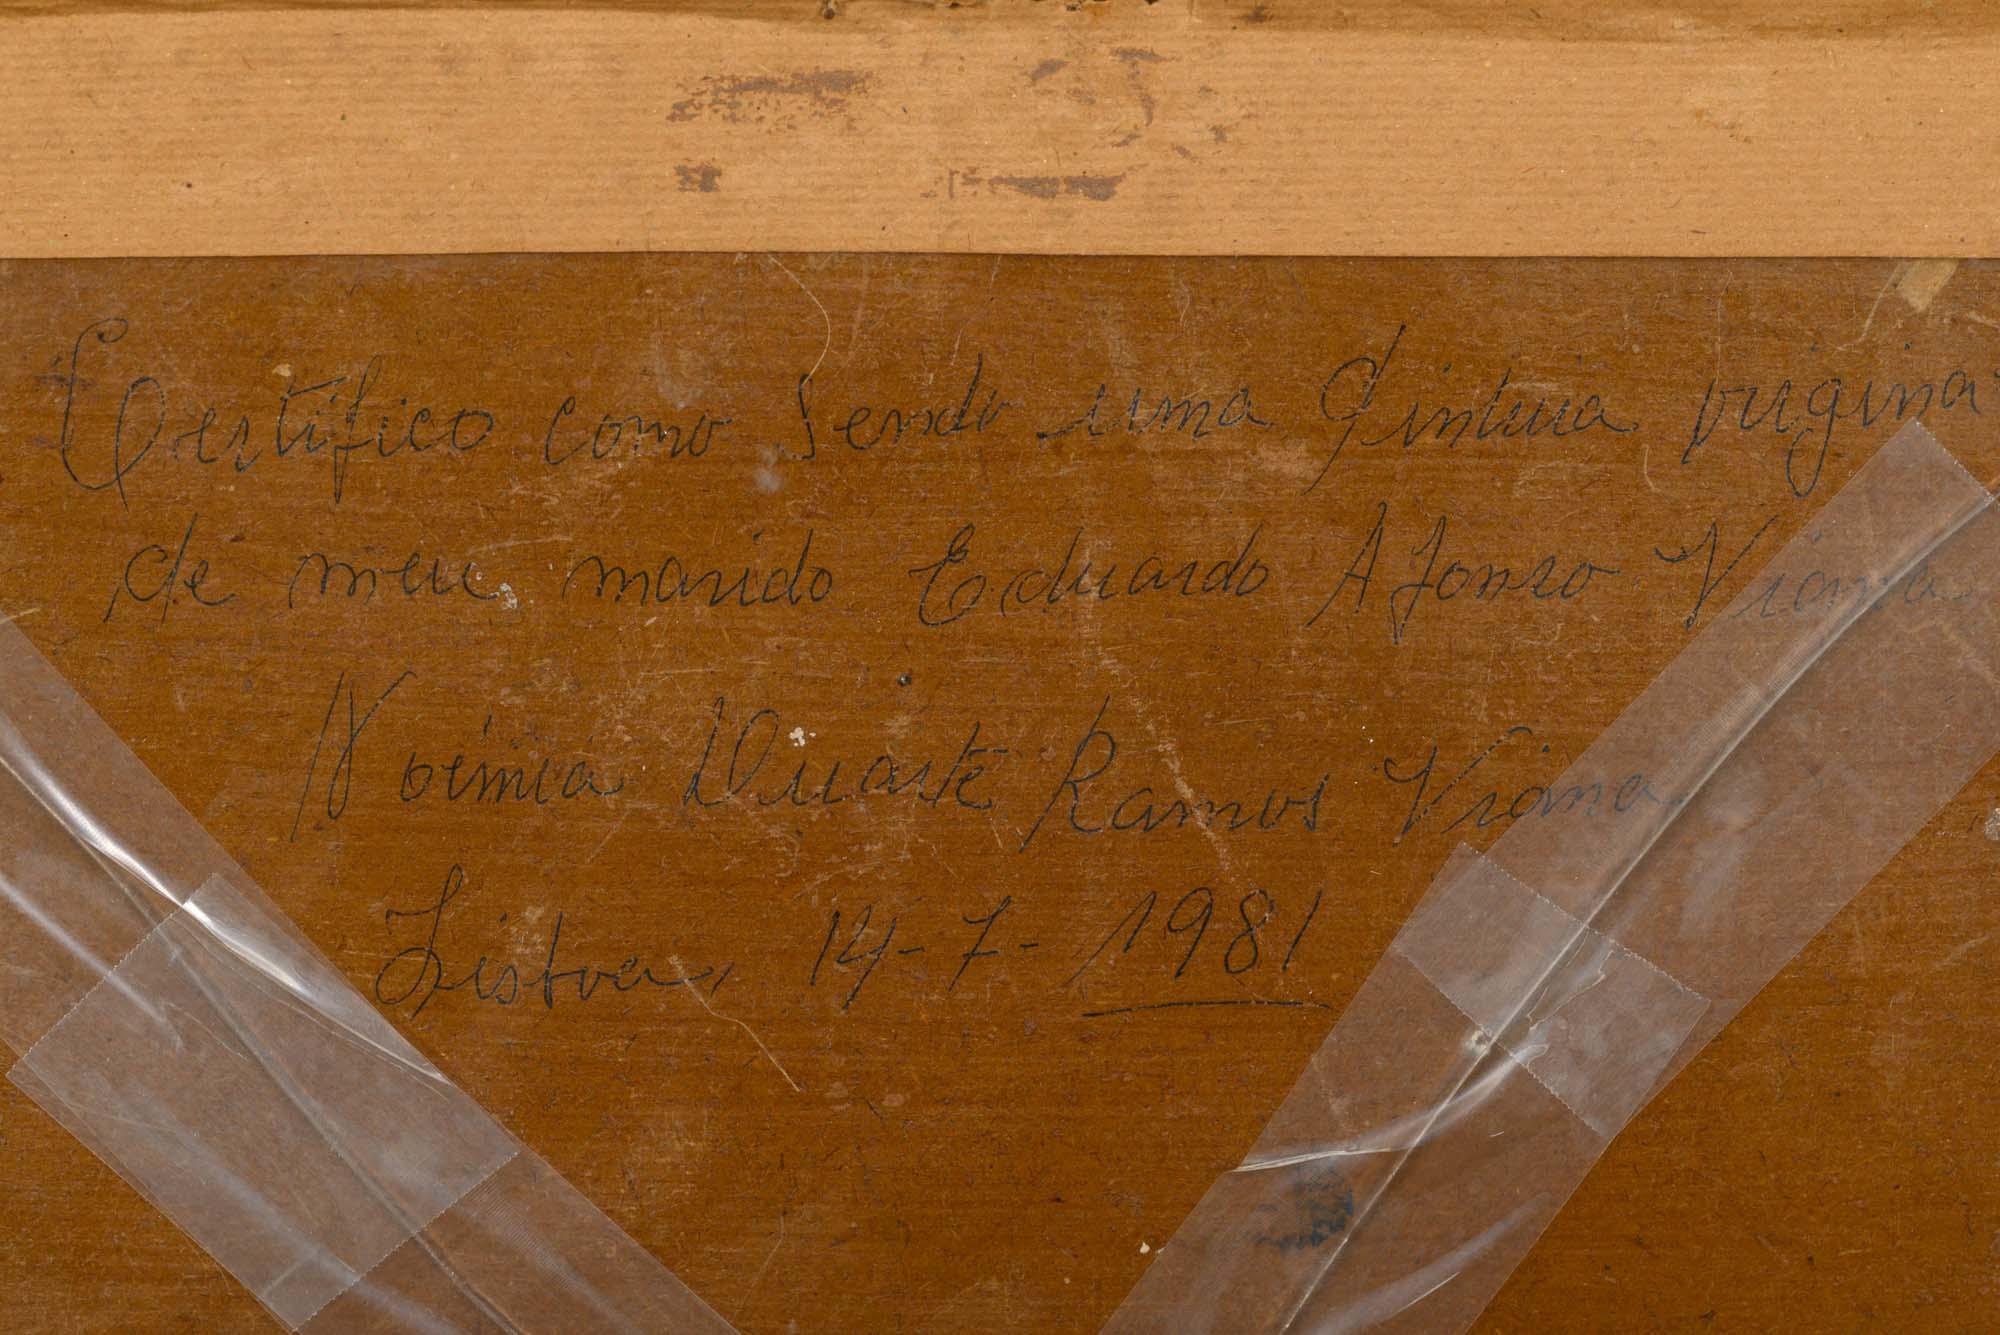 Certifico como sendo uma Pintura origina
de meu marido Eduardo Afonso Viana
Noémia Duarte Ramos Viana
Lisboa, 14-7-1981